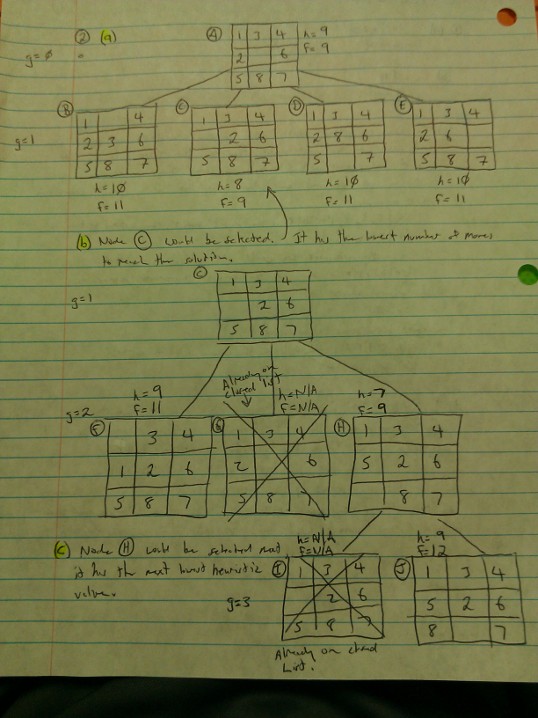 ② (a)
g=0
Ⓐ 1 3 4 h=9
2 6 f=9
5 8 7
g=1
Ⓑ 1 4
2 3 6
5 8 7
h=10
f=11
Ⓒ 1 3 4
2 6
5 8 7
h=8
f=9
Ⓓ 1 3 4
2 8 6
5 7
h=10
f=11
Ⓔ 1 3 4
2 6
5 8 7
h=10
f=11
(b) Node Ⓒ would be selected. It has the lowest number of moves
to reach the solution.
g=1
Ⓒ
1 3 4
2 6
5 8 7
g=2
h=9
f=11
Ⓕ 3 4
1 2 6
5 8 7
Already on
closed list
h=N/A
f=N/A
Ⓖ 1 3 4
2 6
5 8 7
h=7
f=9
Ⓗ 1 3 4
5 2 6
8 7
(c) Node Ⓗ would be selected next
it has the next lowest heuristic
value.
g=3
h=N/A
f=N/A
Ⓘ 1 3 4
2 6
5 8 7
Already on closed
list.
h=9
f=12
Ⓙ 1 3 4
5 2 6
8 7